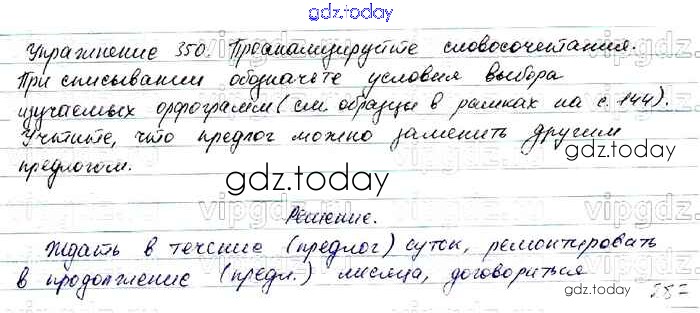 gdz.today
Упражнение 350. Проанализируйте словосочетания.
При списывании обозначьте условия выбора
изучаемых орфограмм (см. образцы в рамках на с. 144).
Учтите, что предлог можно заменить другим
предлогом.
gdz.today
Решение.
Ждать в течение (предлог) суток, ремонтировать
в продолжение (предл.) месяца, договориться
gdz.today